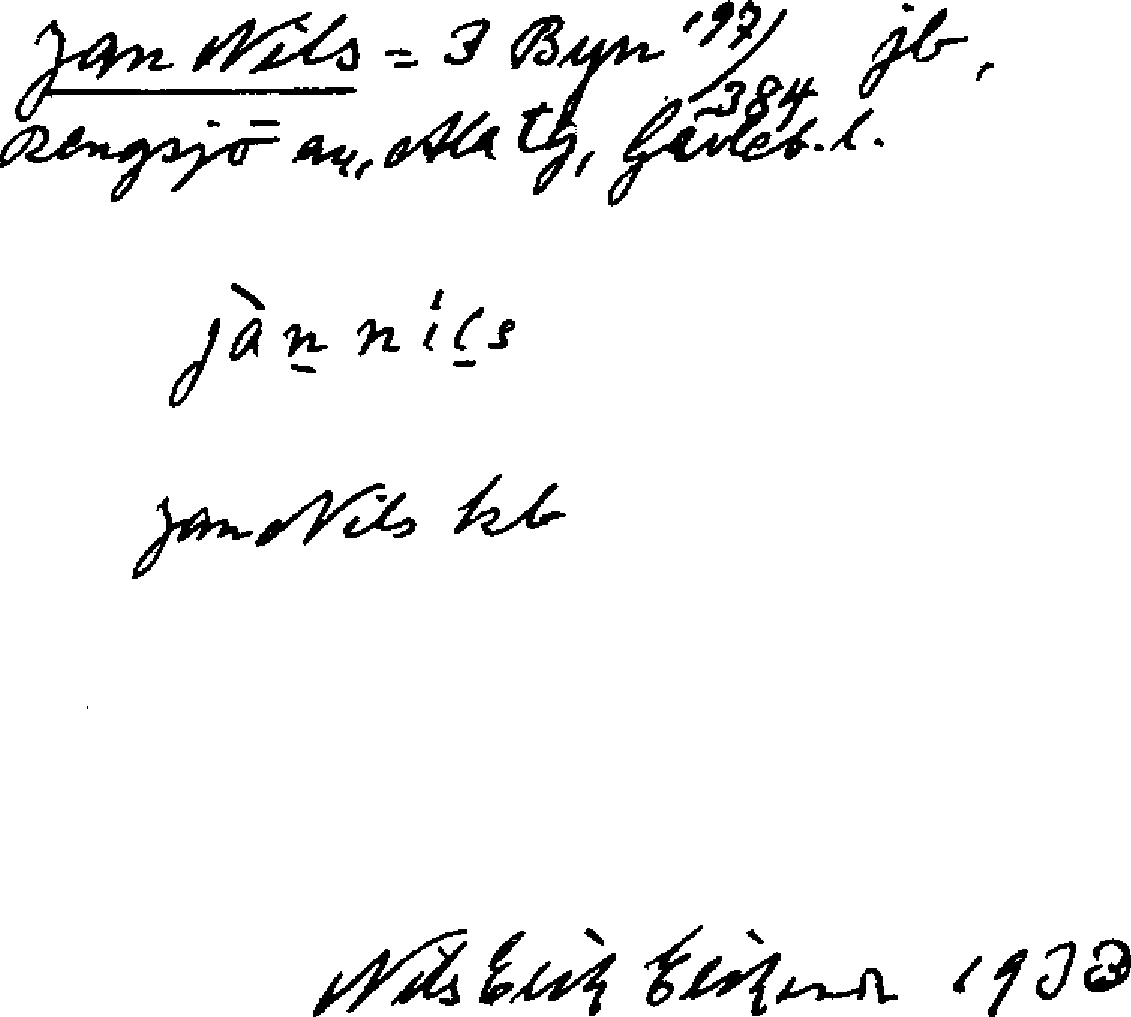 Jan Nils = 3 Byn 197/384 jb,
Rengsjö sn, Ala tg, Gävleb. l.
jàn níls
Jan Nils kb
Nils Erik Erikson 1933